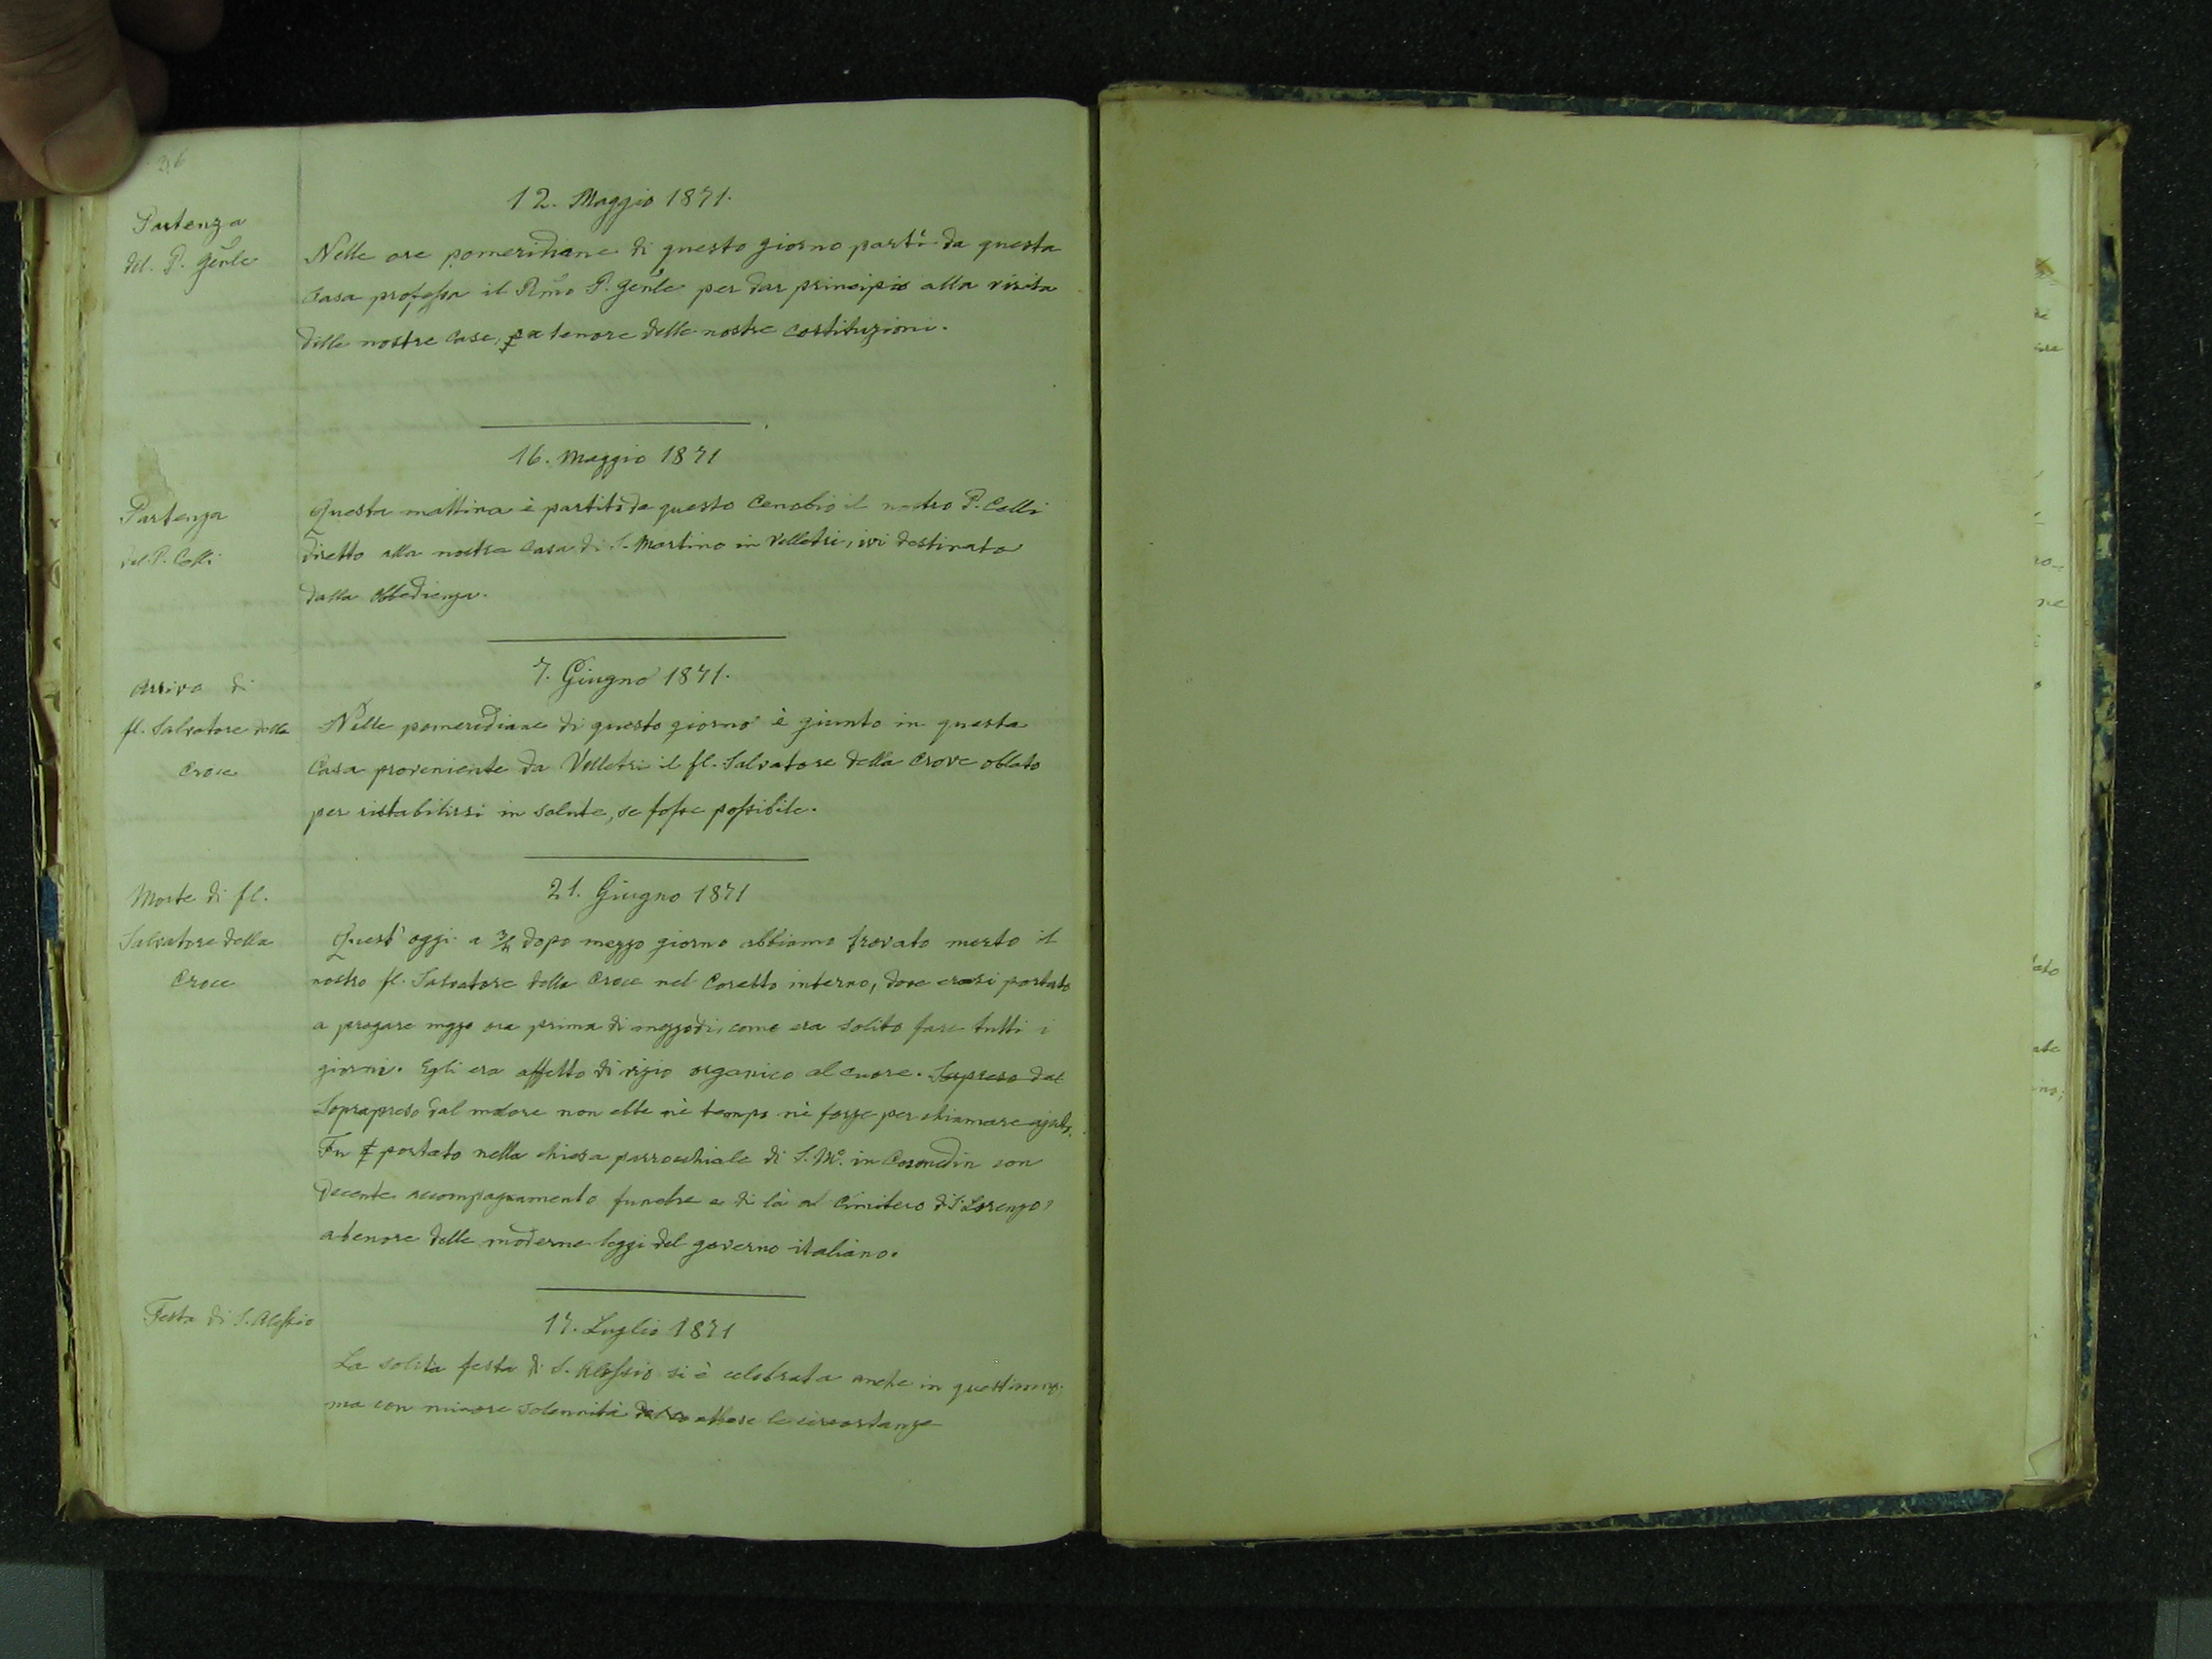 26
12. Maggio 1871.
Partenza
del. P. Genle
Nelle ore pomeridiane di questo giorno partì da questa
Casa professa il Rmo P. Genle per dar principio alla visita
delle nostre Case, a tenore delle nostre costituzioni.
16. Maggio 1871
Partenza
del P. Colli
Questa mattina è partito da questo Cenobio il nostro P. Colli
diretto alla nostra Casa di S. Martino in Velletri, ivi destinato
dalla Obbedienza.
7. Giugno 1871.
Arrivo di
fl. Salvatore della
Croce
Nelle pomeridiane di questo giorno è giunto in questa
Casa proveniente da Velletri il fl. Salvatore della Crove oblato
per ristabilirsi in salute, se fosse possibile.
21. Giugno 1871
Morte di fl.
Salvatore della
Croce
Quest'oggi a 3/4 dopo mezzo giorno abbiamo trovato morto il
nostro fl. Salvatore della Croce nel Coretto interno, dove erasi portato
a pregare mezzo ora prima di mezzodi, come era solito fare tutti i
giorni. Egli era affetto di vizio organico al cuore. Sopreso dal
Soprapreso dal malore non ebbe nè tempo nè forze per chiamare ajuto.
Fu portato nella chiesa parrocchiale di S. Ma. in Cosmedin con
decente accompagnamento funebre e di là al Cimitero di S. Lorenzo,
a tenore delle moderne leggi del governo italiano.
Festa di S. Alessio
17. Luglio 1871
La solita festa di S. Alessio si è celebrata anche in quest'anno,
ma con minore solennità attese le circostanze